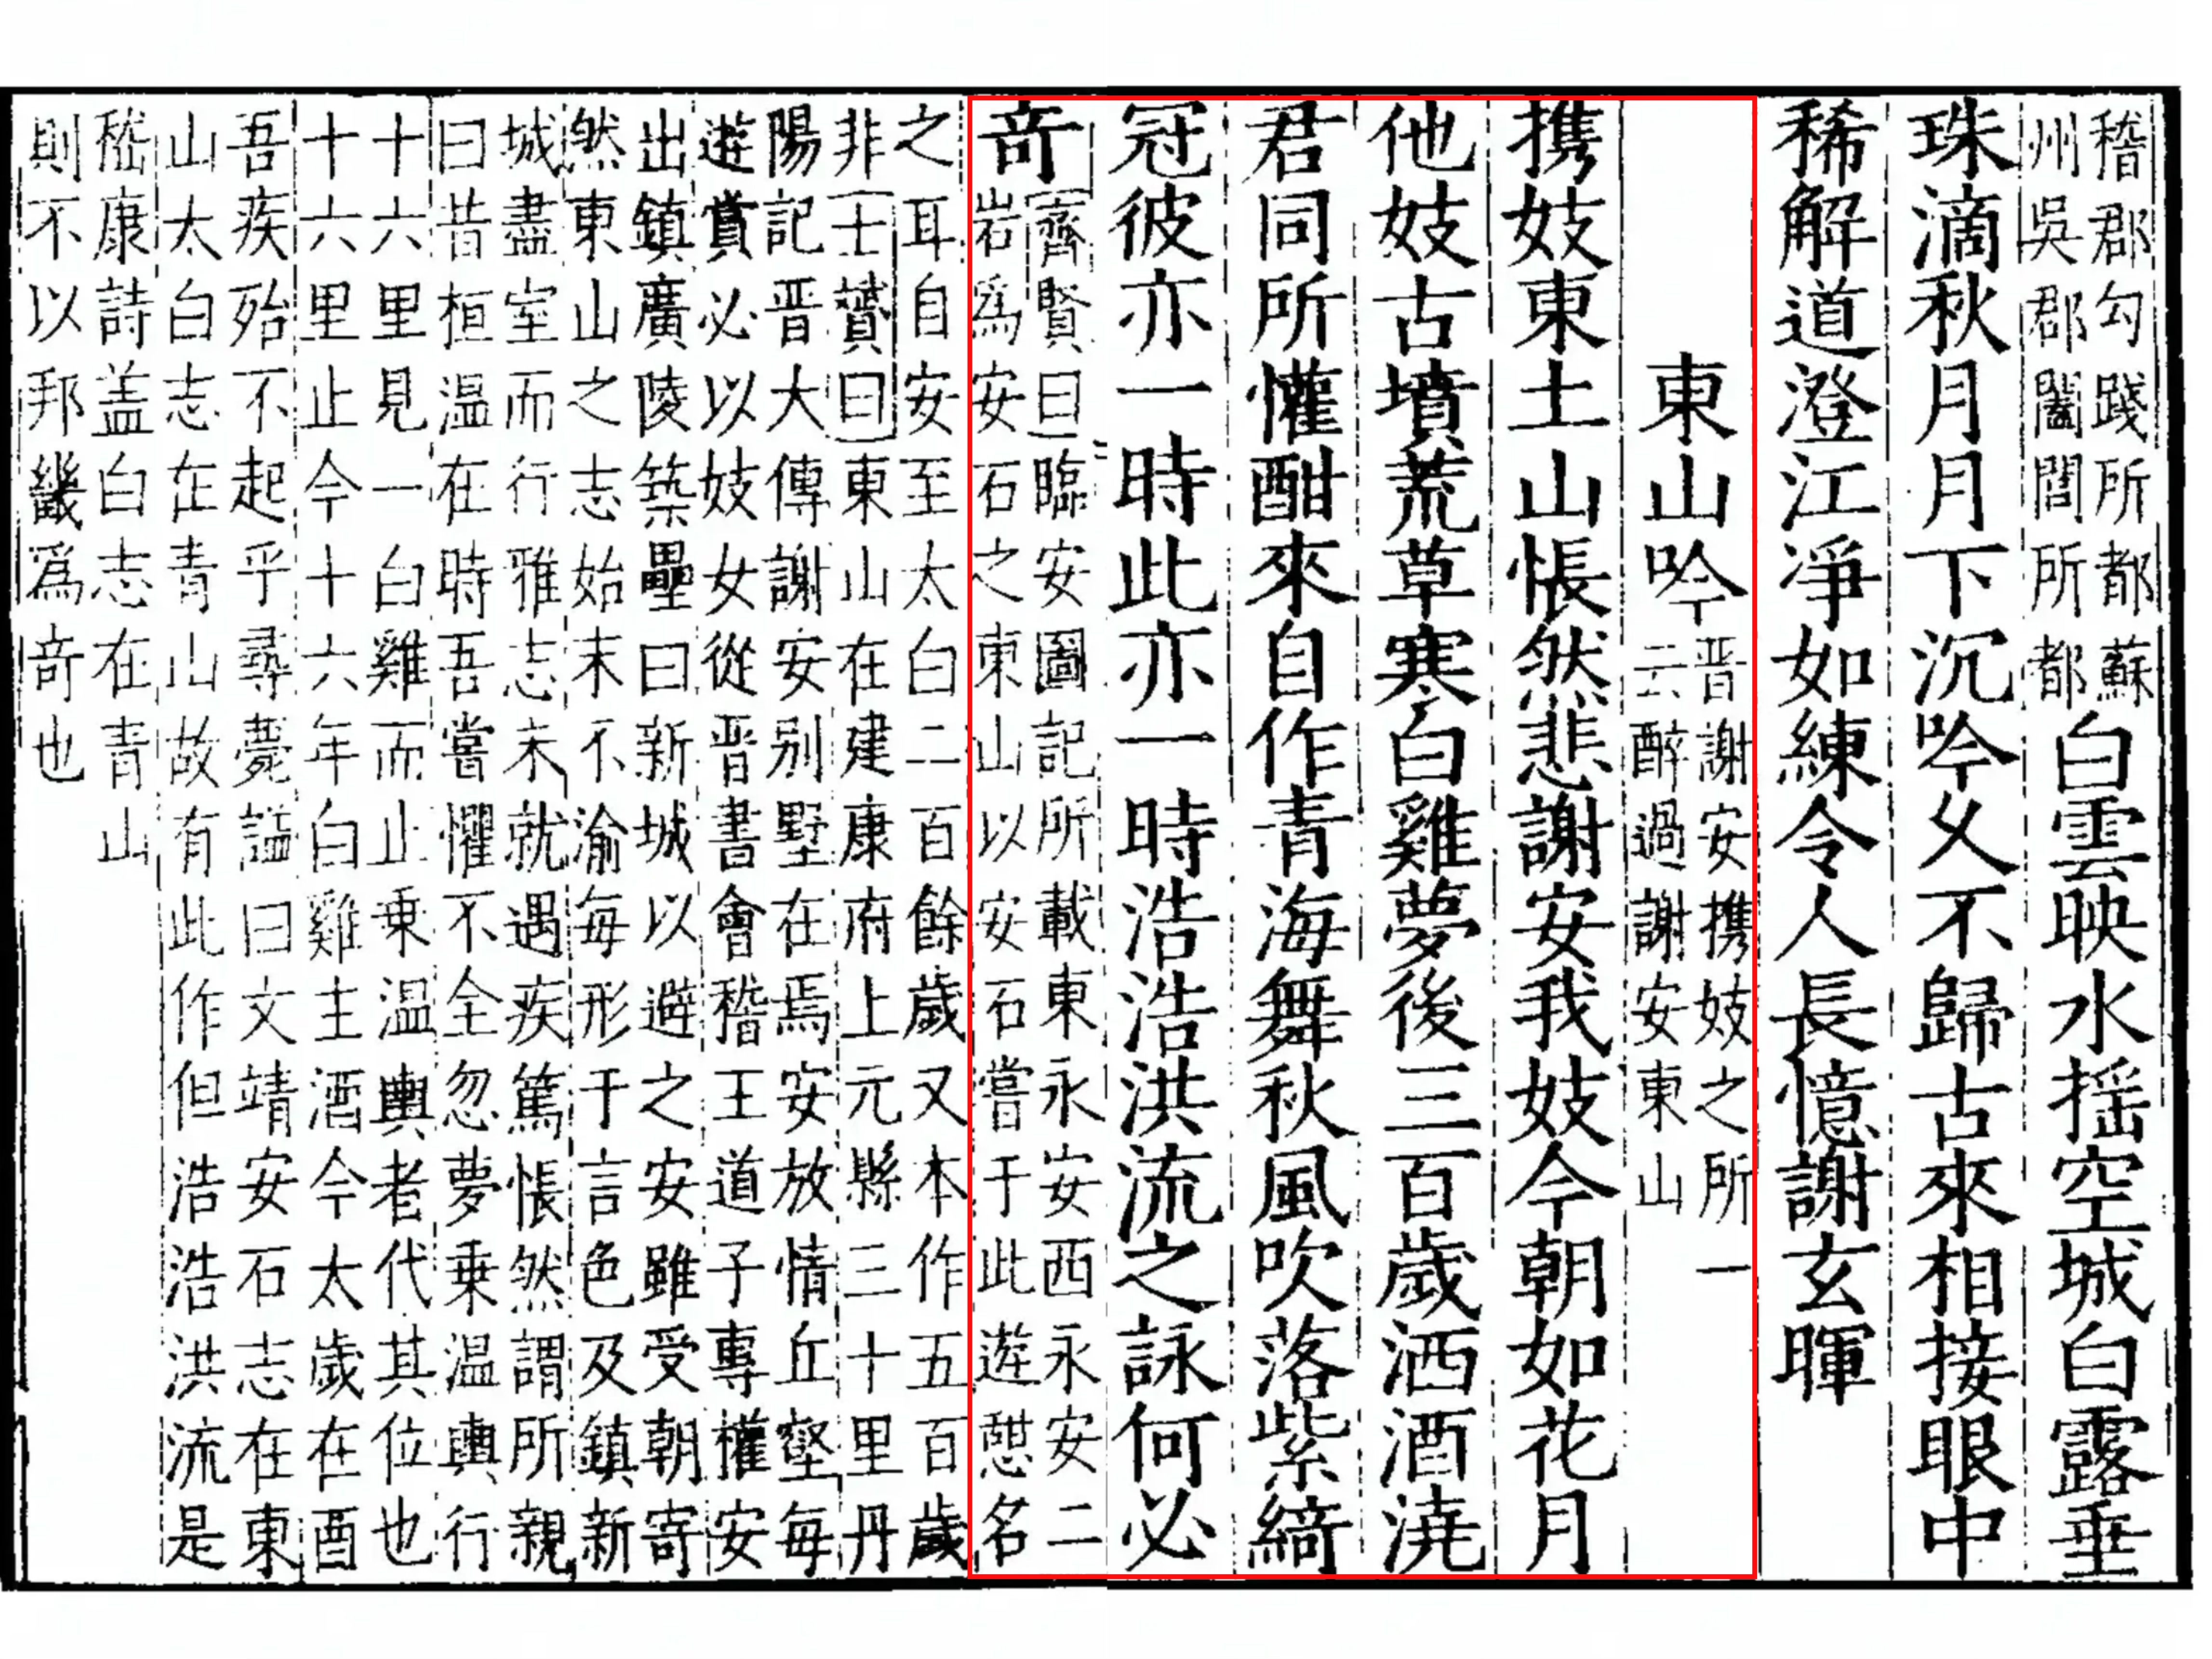 稽郡勾踐所都蘇
州吳郡闔閭所都
白雲映水揺空城白露垂
珠滴秋月月下沉吟夂不歸古來相接眼中
稀解道澄江淨如練令人長憶謝玄暉
東山吟
晋謝安携妓之所一
云醉過謝安東山
携妓東土山悵然悲謝安我妓今朝如花月
他妓古墳荒草寒白雞夢後三百歲洒酒澆
君同所懽酣來自作青海舞秋風吹落紫綺
冠彼亦一時此亦一時浩浩洪流之詠何必
竒
齊賢曰臨安圖記所載東永安西永安二
岩爲安石之東山以安石嘗于此遊憇名
之耳自安至太白二百餘歲又本作五百歲
非士贇曰東山在建康府上元縣三十里丹
陽記晋大傳謝安别墅在焉安放情丘壑每
遊賞必以妓女從晋書會稽王道子專權安
出鎮廣陵築壘曰新城以避之安雖受朝寄
然東山之志始末不渝每形于言色及鎮新
城盡室而行雅志未就遇疾篤悵然謂所親
曰昔桓温在時吾嘗懼不全忽夢乗温輿行
十六里見一白雞而止乗温輿者代其位也
十六里止今十六年白雞主酒今太歲在酉
吾疾殆不起乎尋薨謚曰文靖安石志在東
山太白志在青山故有此作但浩浩洪流是
嵇康詩盖白志在青山
則不以邦畿爲竒也